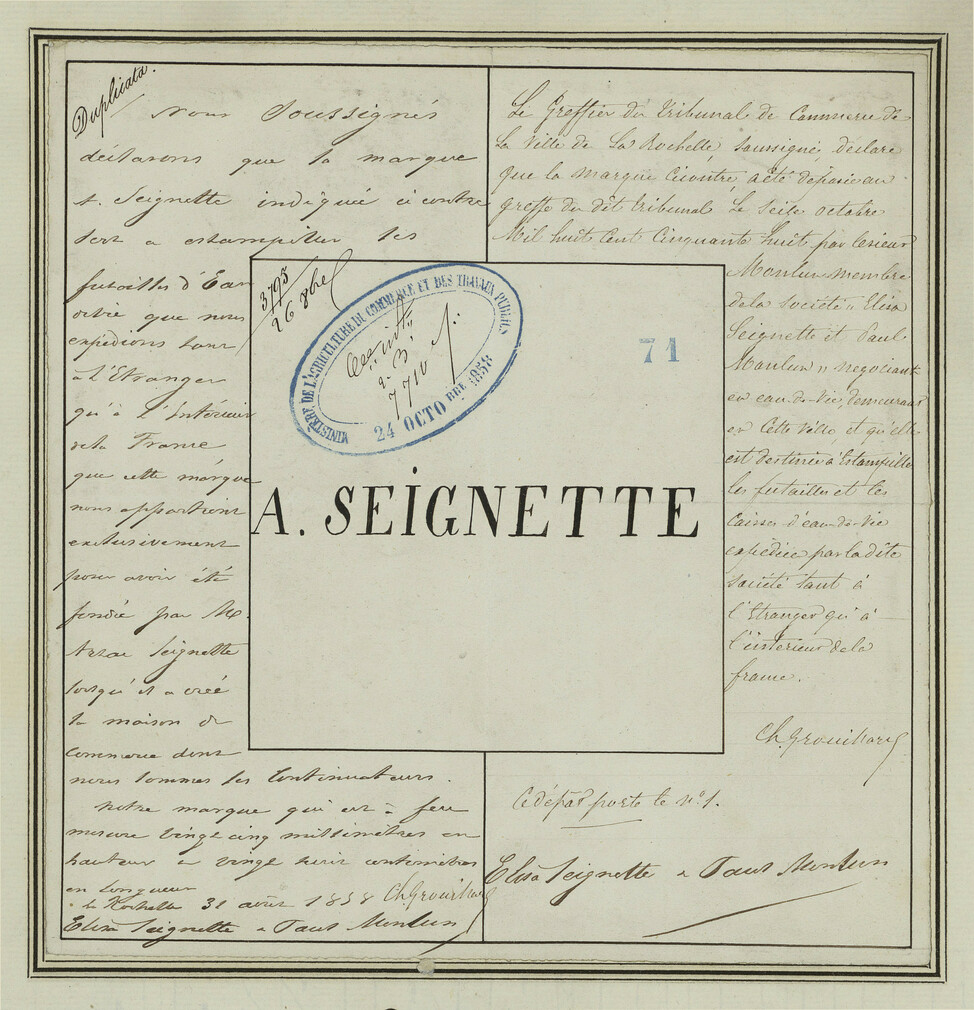 Duplicata.
Nous Soussignés
déclarons que la marque
A. Seignette indiquée ci contre
sert a estampiller les
futailles d'Eau
que nous
expédions tant
à l'Etranger
qu'à l'Intérieur
de la France
que cette marque
nous appartient
exclusivement
pour avoir été
fondée par Mr.
Seignette
lorsqu'il a créé
la maison de
Commerce dont
nous sommes les Continuateurs.
Notre marque qui est à feu
mesure vingt cinq millimètres en
hauteur et vingt huit centimètres
en longueur
La Rochelle 31 août 1858 Ch. Grouillard
Elisa Seignette & Paul Monlun
3795
26 8bre
MINISTÈRE DE L'AGRICULTURE DU COMMERCE ET DES TRAVAUX PUBLICS
7710
24 OCTOBRE 1858
71
A. SEIGNETTE
Le Greffier du tribunal de Commerce de
La Ville de La Rochelle, soussigné, déclare
que la marque ci contre, a été déposée au
greffe du dit tribunal le seize octobre
Mil huit Cent Cinquante huit par le sieur
Monlun membre
de la société "Elisa
Seignette et Paul
Monlun" négociant
en eau-de-vie, demeurant
en Cette Ville, et qu'elle
est destinée à Estampiller
les futailles et les
Caisses d'eau-de-vie
expédiée par la dite
société tant à
l'Etranger qu'à
l'intérieur de la
france.
Ch. Grouillard
Ce dépôt porte le No 1.
Elisa Seignette & Paul Monlun